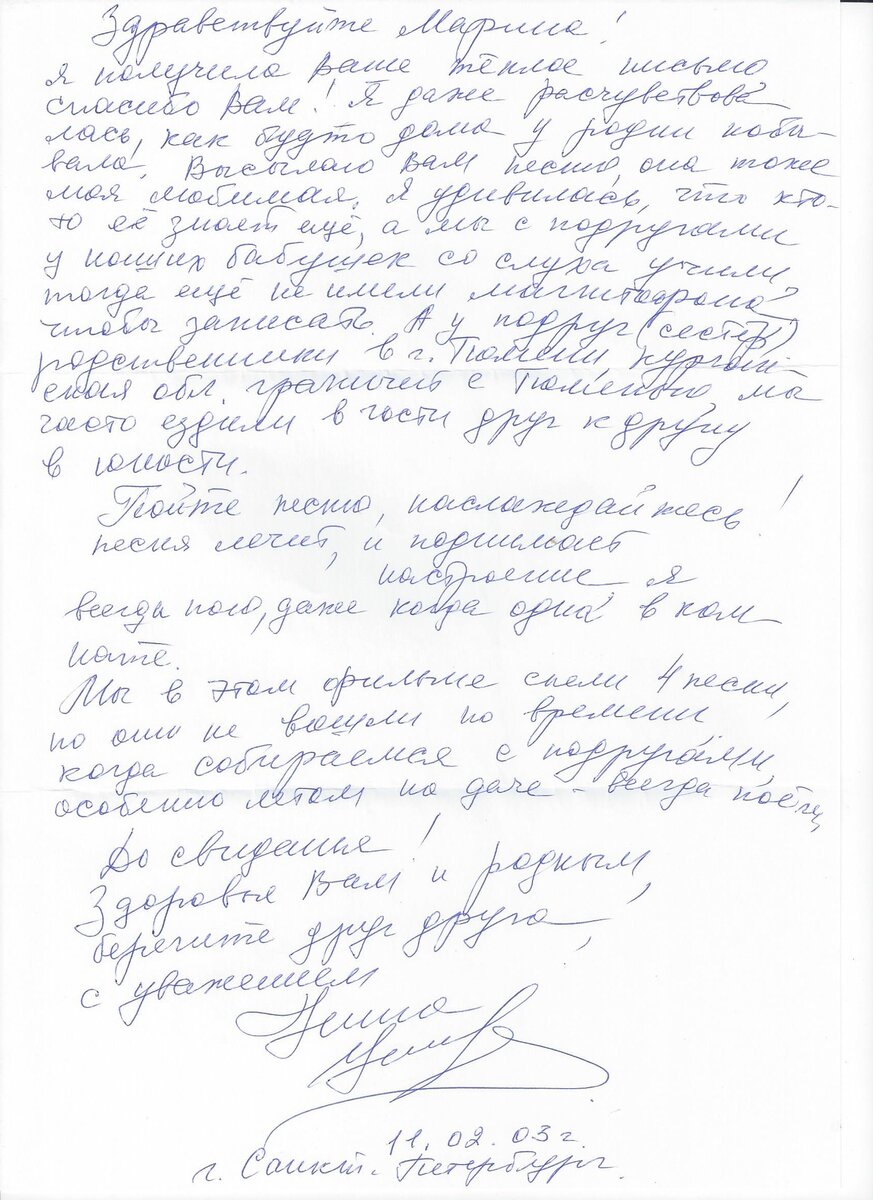 Здравствуйте Марина!
Я получила Ваше тёплое письмо
спасибо Вам! Я даже расчувствова
лась, как будто дома у родни побы-
вала. Высылаю Вам песню, она тоже
моя любимая. Я удивилась, что кто-
то её знает ещё, а мы с подругами
у наших бабушек со слуха учили
тогда ещё не имели магнитофона
чтобы записать. А у подруг (сестёр)
родственники в г. Тюмени Курган-
ская обл. граничит с Тюменью, мы
часто ездили в гости друг к другу
в юности.
Пойте песню, наслаждайтесь!
песня лечит, и поднимает
настроение я
всегда пою, даже когда одна в ком
нате.
Мы в этом фильме спели 4 песни,
но они не вошли по времени
когда собираемся с подругами
особенно летом на даче - всегда поём,
До свиданья!
Здоровья Вам и родным
берегите друг друга!
с уважением
Нина
11.02.03 г.
г. Санкт-Петербург.